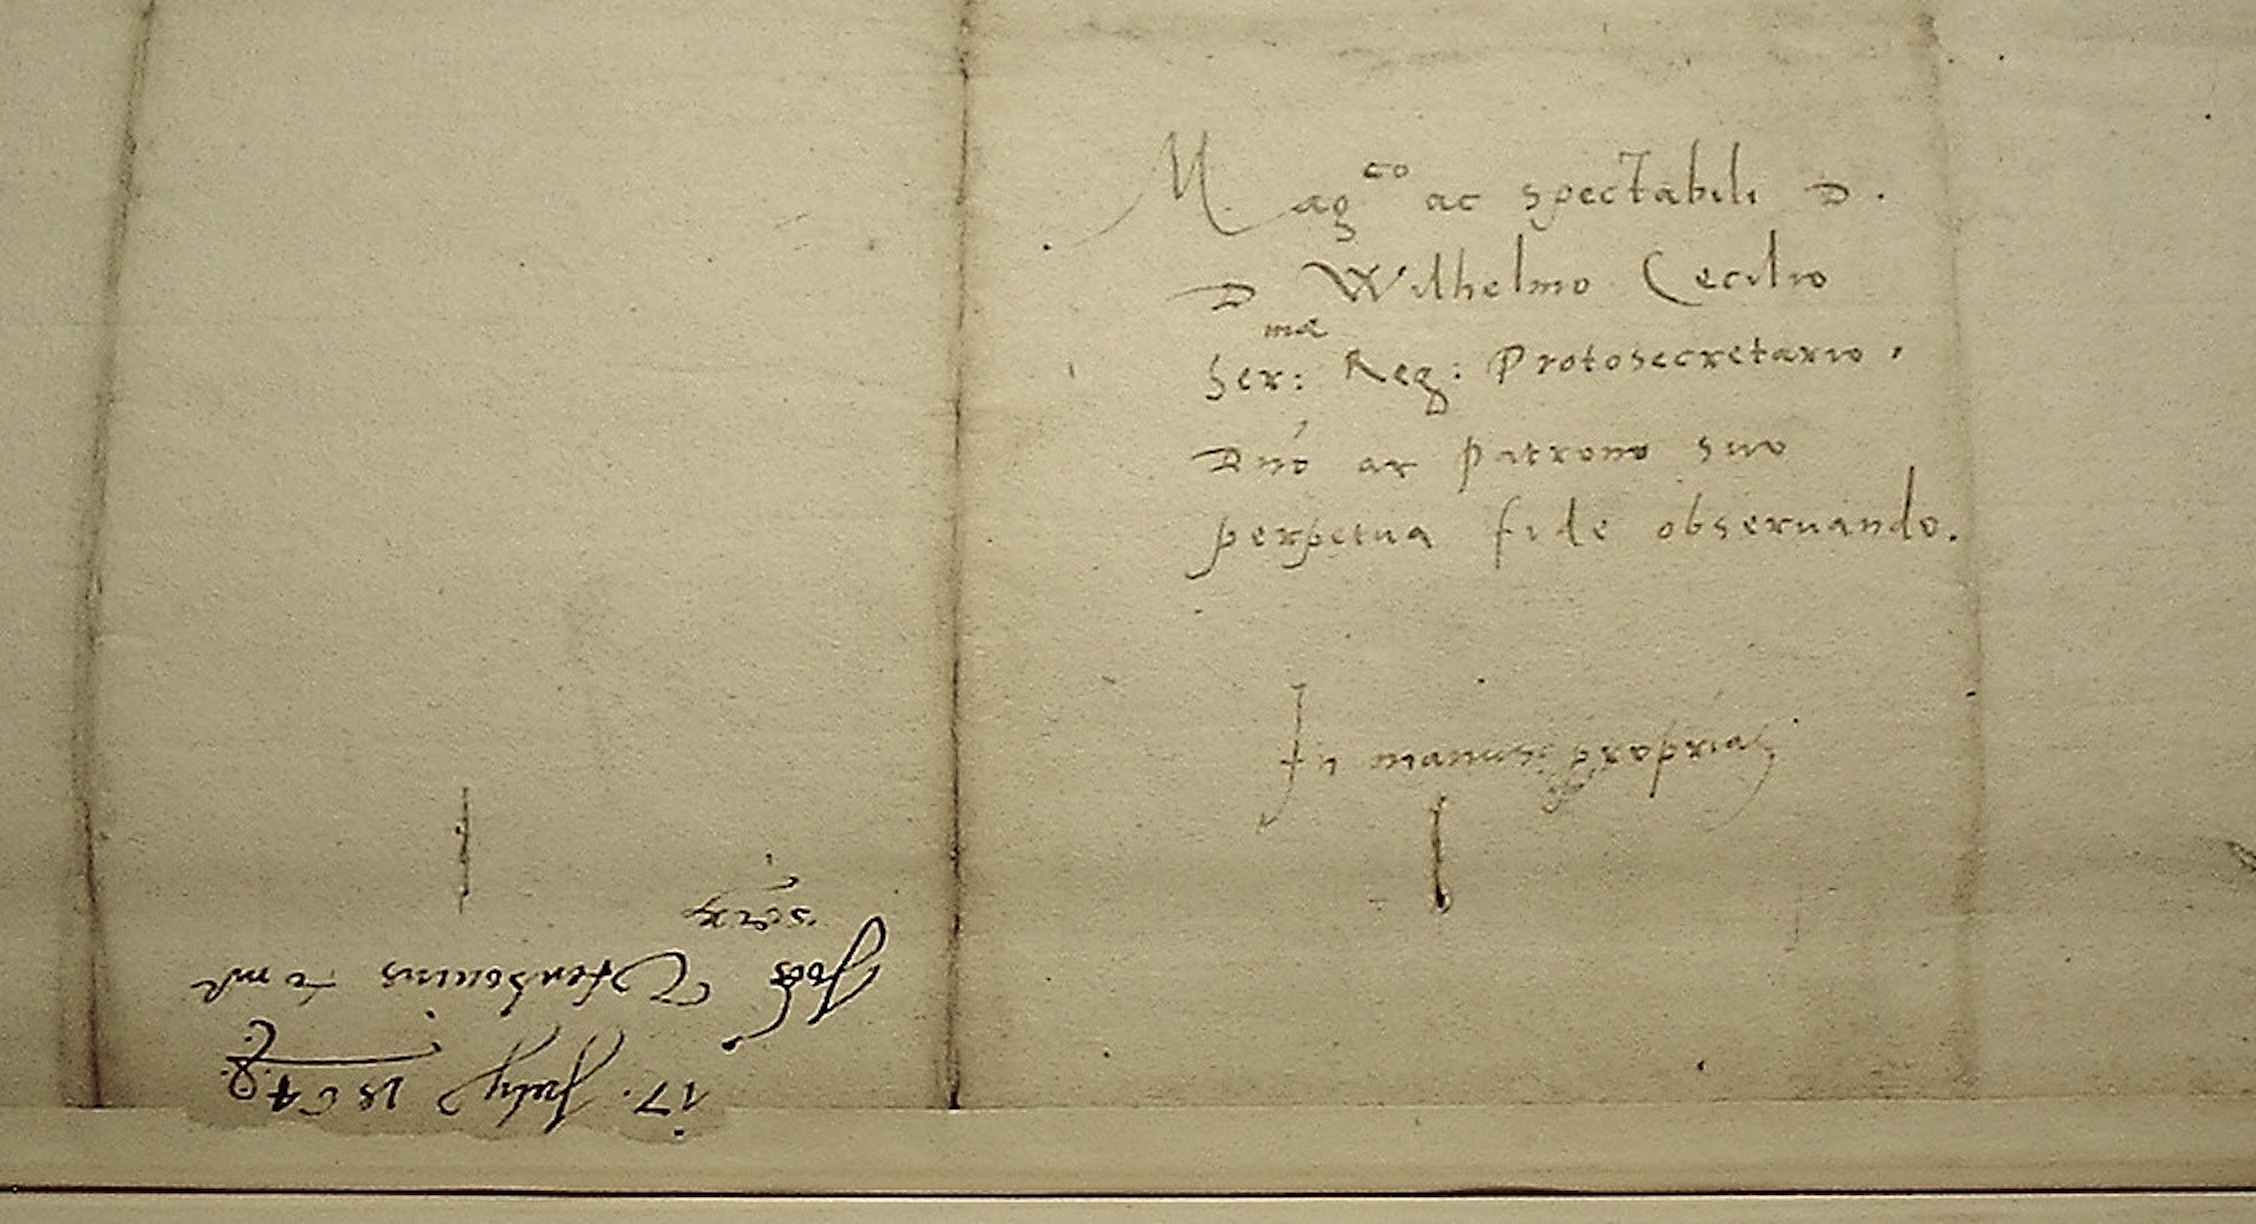 Mag^co ac spectabili D.
D Wilhelmo Cecilio
Ser:^mæ Reg: Protosecretario,
Dnó ac patrono suo
perpetua fide obseruando.
In manus proprias
17. July 1564
Joēs Utenhouius